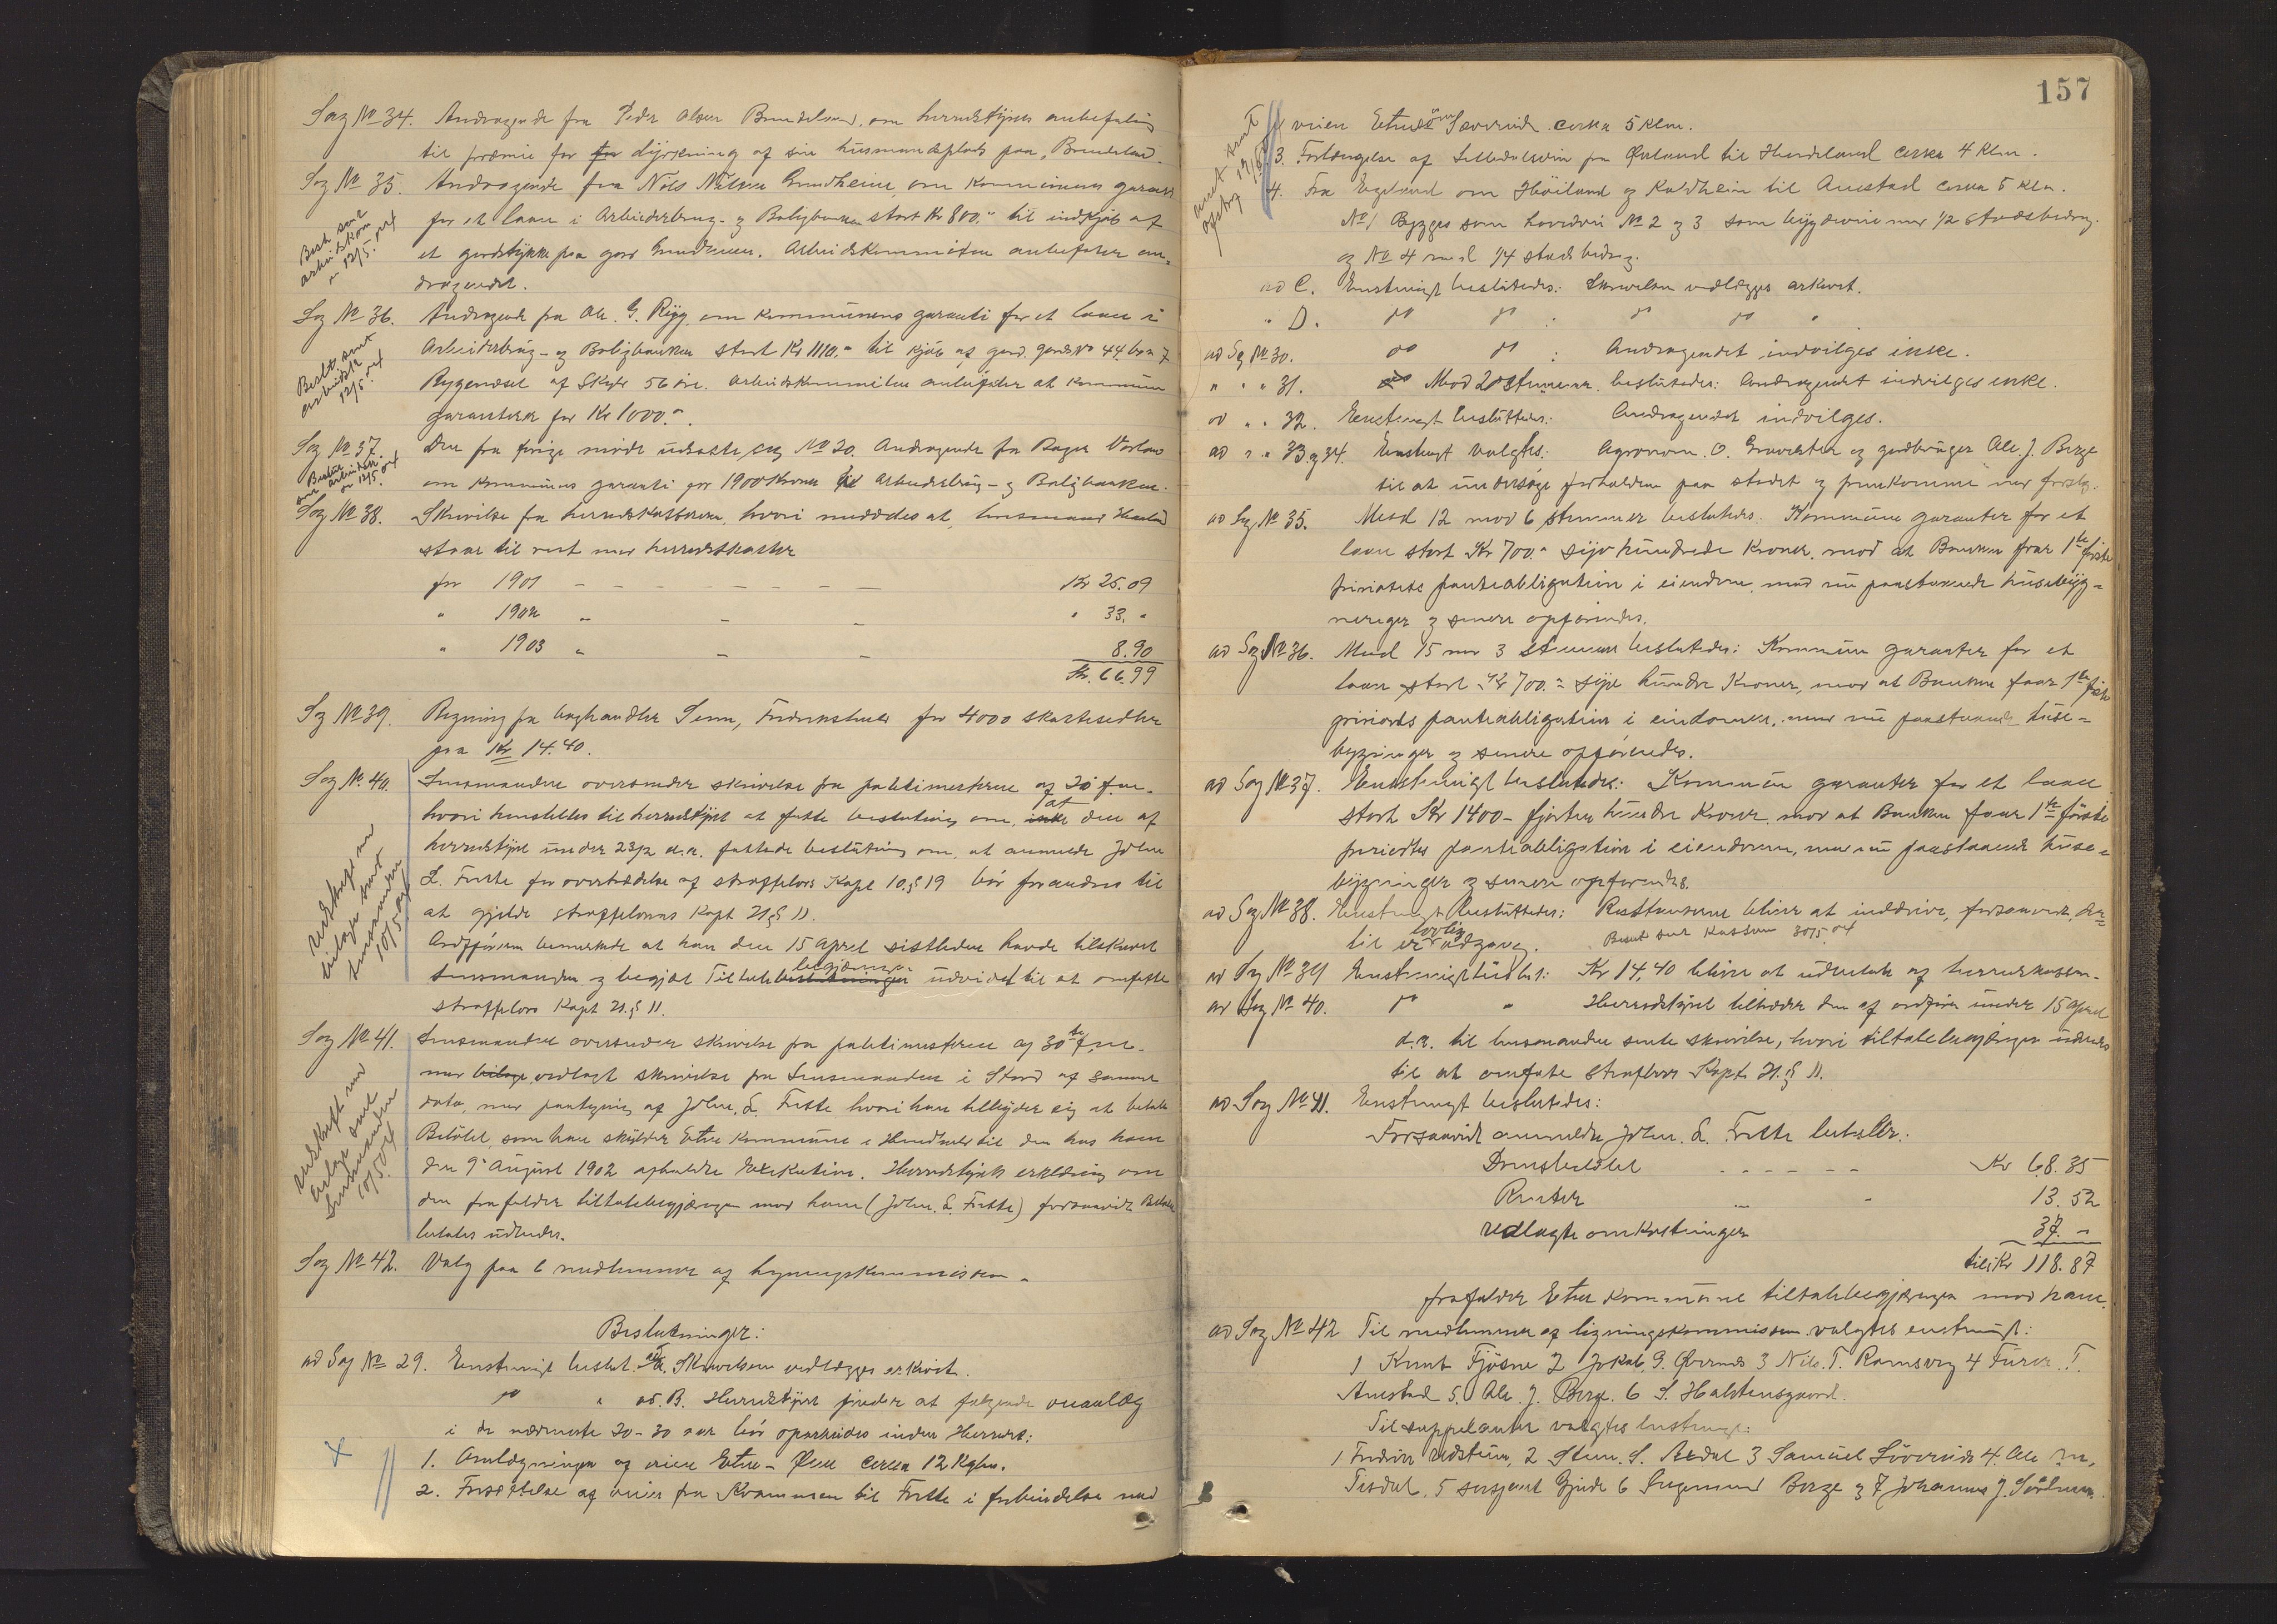 Sag No 34. Andragende fra Peder Olsen Brendeland, om herredstyrets anbefaling
til præmie for for dyrkning af sin husmandsplads paa Brendeland.
Sag No 35. Andragende fra Nils Nilsen Grindheim, om kommunens garanti
for et laan i Arbeiderbrug- og Boligbanken stort Kr 800.- til indkjøb af
et jordstykke paa gaard Grindheim. Arbeidskommiteen anbefaler an-
dragendet.
Besk. sent
arbeidskom
12/5.
Sag No 36. Andragende fra Ole G. Rygg, om kommunens garanti for et laan i
Arbeiderbrug- og Boligbanken stort Kr 1110.- til kjøb af gaard. gaards No 44 br.n 7
Rygenæset af Skyld 56 øre. Arbeidskommiteen anbefaler at kommunen
garanterer for Kr 1000.-.
Besk. sent
arbeidsk
12/5.
Sag No 37. Den fra forige møde udsatte sag No 20. Andragende fra Roger
om kommunens garanti for 1900 Kroner til Arbeiderbrug- og Boligbanken.
12/5.
Sag No 38. Skrivelse fra herredskassereren, hvori meddeles at,
staar til rest med herredsskatter
for 1901 - - - - - - - - Kr 25.09
" 1902 " - - " 33. "
" 1903 " - - 8.90
Kr. 66.99
Sag No 39. Regning fra boghandler Senn, Fredrikshald for 4000 skattesedler
paa Kr 14.40.
Sag No 40. Lensmanden oversender skrivelse fra politimesteren af 20 f.m.
hvori henstilles til herredstyret at fatte beslutning om, at inkte den af
herredstyret under 23/2 d.a. fattede beslutning om, at anmelde John
L. Fitte for overtrædelse af straffelovs Kapt 10 § 19 bør forandres til
at gjelde straffelovens Kapt 21 § 11.
Ordføreren bemerkede at han den 15 april sistleden havde tilskrevet
Lensmanden og begjæt Tiltale beslutningen begjæringen udvidet til at omfatte
straffelovs Kapt 21 § 11.
Udskrift med
bilage sent
lensmanden
10/5
Sag No 41. Lensmanden oversender skrivelse fra politimesteren af 30te f.m.
med bilage vedlagt skrivelse fra Lensmanden i Stord af samme
dato, med paategning af John. L. Fitte hvori han tilbyder sig at betale
Beløbet som han skylder Etne kommune i Henhold til den hos ham
den 9' August 1902 afholdte Exekution. Herredstyrets erklæring om
den frafalder tiltalebegjæringen mod ham (John. L. Fitte) forsaavidt Beløbet
betales udbedes.
Udskrift med
bilage sent
lensmanden
10/5
Sag No 42. Valg paa 6 medlemmer af ligningskommissionen.
Beslutninger:
ad Sag No 29. Enstemmigt beslut. ad A. Skrivelsen vedlægges arkivet.
do " ad. B. Herredstyret finder at følgende veianlæg
i de nærmeste 20-30 aar bør oparbeides inden Herredet:
1. Omlægningen af veien Etne - Ølen cirka 12 Kglm.
2. Fortsettelse af veien fra Kvamman til Fitte i forbindelse med
157
veien Etnes om Søvereide cirka 5 Klm.
3. Forlængelse af Litledalsvein fra Øvland til Hardeland cirka 4 Klm.
4. Fra Egeland om Høiland og Kaldheim til Amstad cirka 5 Klm.
No 1 Bygges som hovedvei No 2 og 3 som bygdeveie med 1/2 stadsbidrag
og No 4 med 1/4 stadsbidrag.
ad C. Enstemmigt beslutedes: Skrivelsen vedlægges arkivet.
" D. do do : do do "
ad Sag No 30. do do : Andragendet indvilges ikke.
" " " 31. Mod 2 stemmer beslutedes: Andragendet indvilges ikke.
ad " " 32. Enstemmigt beslutedes: Andragendet indvilges.
ad " " 33 og 34. Enstemmigt valgtes: Agronom. O. Gravdehter og gardbruger Ole. J. Berge
til at undersøge forholdene paa stedet og fremkomme med forslag.
ad Sag No 35. Med 12 mod 6 stemmer beslutedes: Kommunen garanterer for et
laan stort Kr 700.- syv hundrede Kroner, mod at Banken faar 1ste første
prioritets panteobligation i eiendom, med nu paastaaende husebyg-
ninger og senere opførendes.
ad Sag No 36. Med 15 mod 3 stemmer beslutedes: Kommunen garanterer for et
laan stort Kr 700.- syv hundre Kroner, mod at Banken faar 1ste første
prioritets panteobligation i eiendommen, med nu paastaaende huse-
bygninger og senere opførendes.
ad Sag No 37. Enstemmigt beslutedes: Kommunen garanterer for et laan
stort Kr 1400 - fjorten hundre Kroner mod at Banken faar 1ste første
prioritets panteobligation i eiendommen, med nu paastaaende huse-
bygninger og senere opførendes.
ad Sag No 38. Enstemmigt beslutedes: Restancerne bliver at inddrive, forsaavidt der
til er lovlig adgang. Besk sent Kassere 30/5
ad Sag No 39 Enstemmigt beslut: Kr 14,40 bliver at udbetale af herredskassen.
ad Sag No 40. do " Herredstyret tiltræder den af ordfører under 15 april
d.a. til lensmanden sendte skrivelse, hvori tiltalebegjæringen udvides
til at omfatte straffelovs Kapt. 21 § 11.
ad Sag No 41. Enstemmigt beslutedes:
Forsaavidt anmeldte John. L. Fitte betaler:
Domsbeløbet - - - - - Kr 68.35
Renter 13.52
vedlagte omkostninger 37. -
tils. Kr 118.87
frafalder Etne kommune tiltalebegjæringen mod ham.
ad Sag No 42 Til medlemmer af ligningskommissionen valgtes enstemmigt:
1 Knut Fjøsne 2 Jakob G. Øvernes 3 Nils. T. Ramsvig 4 Furer. T.
Amstad 5. Ole. J. Berge. 6 S. Halstensgaard.
Til suppleanter valgtes enstemmigt:
1 Fredrik Vedstein, 2 Sten. S. Axdal 3 Samuel Sövereide 4. Ole M.
Tisdal. 5 sersjeant Gjerde 6 Ingemund Berge og 7 Johannes J. Sørheim.